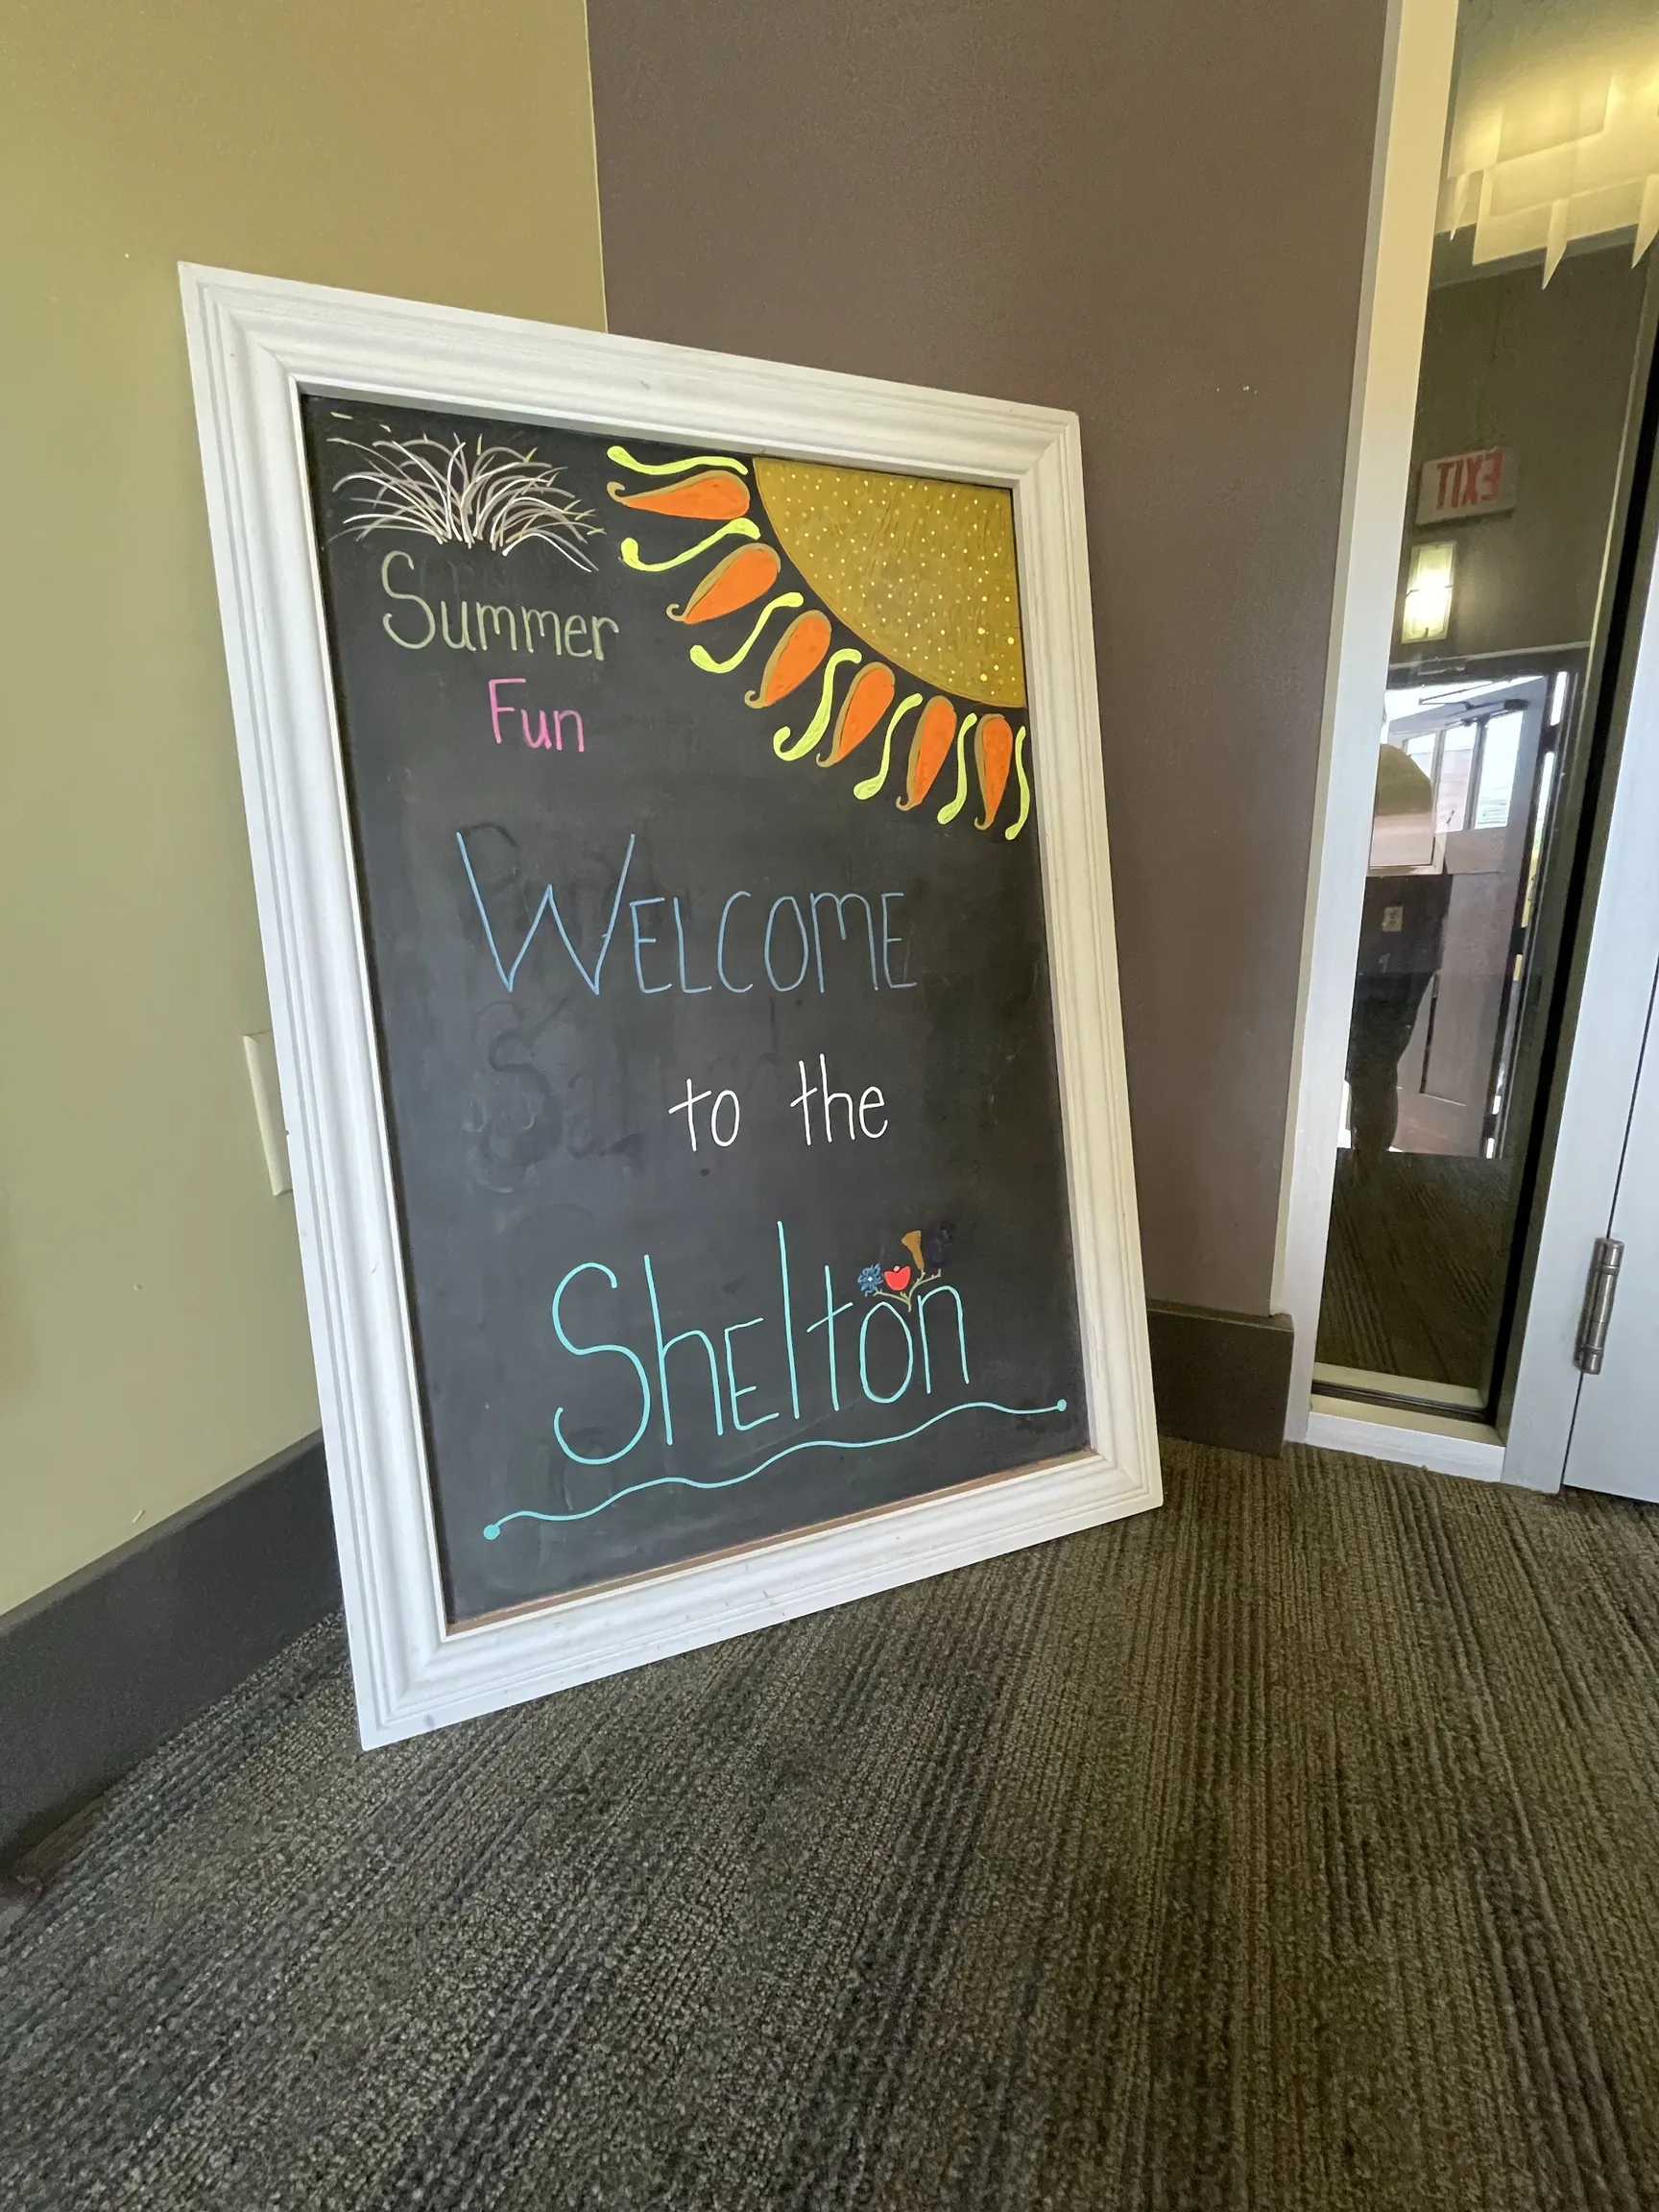 Summer
Fun
WELCOME
to the
Shelton
EXIT